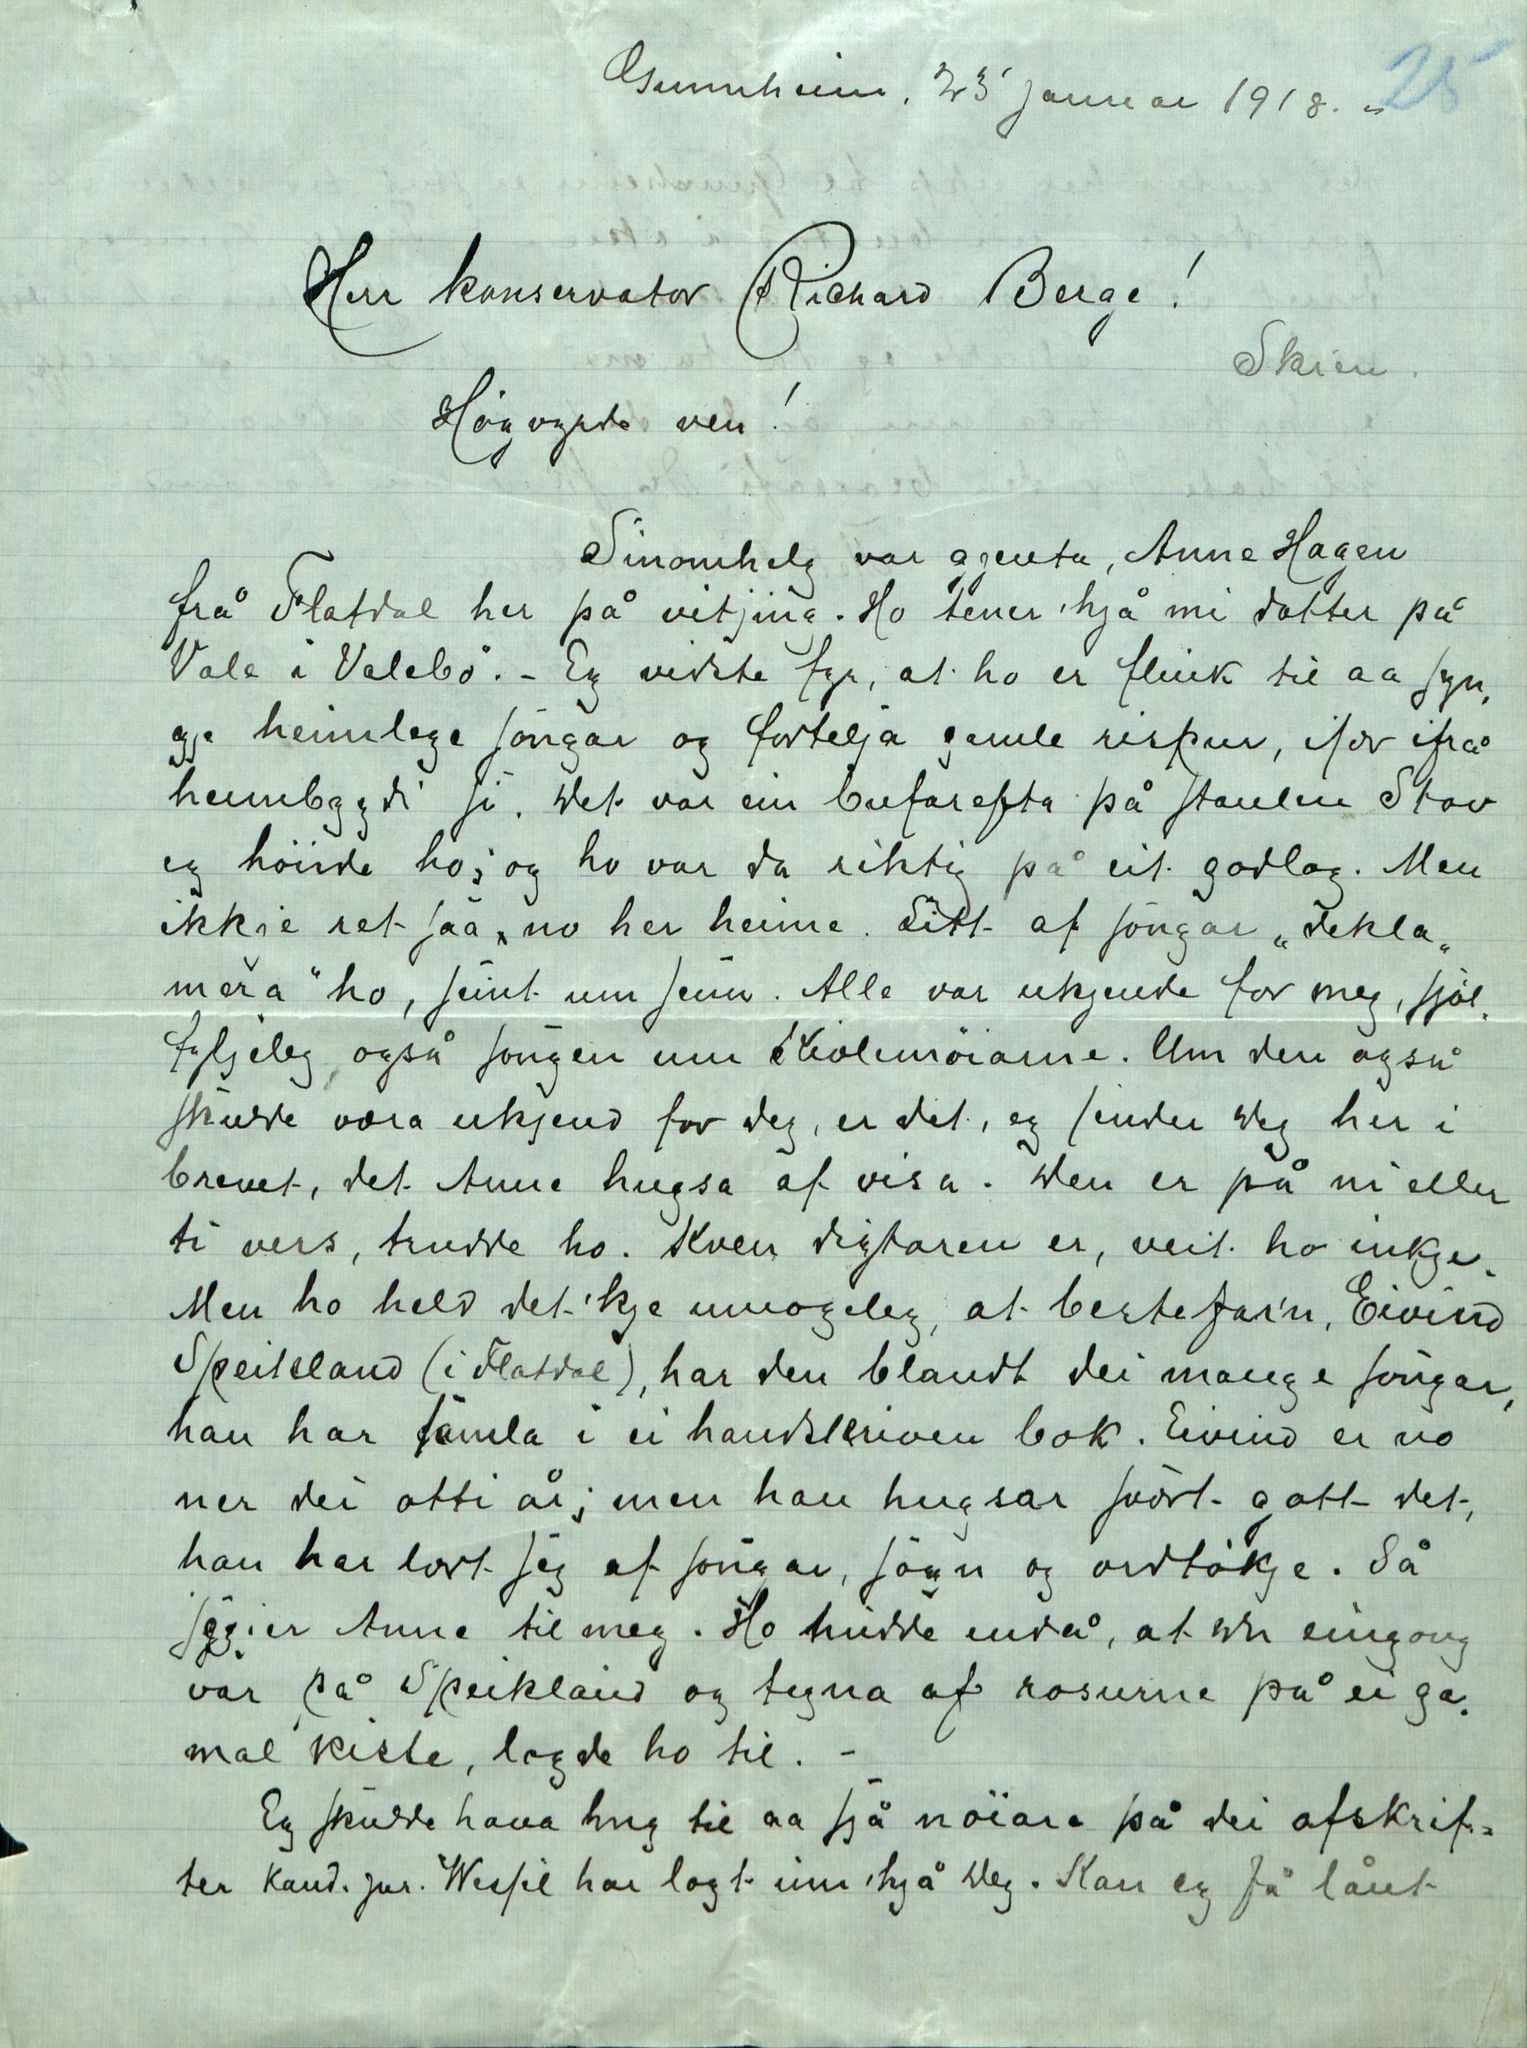 Gunnheim, 23 januar 1918. 25
Herr konservator Richard Berge!
Skien.
Høgvyrde ven!
Sinomhelg var gjenta, Anne Hagen
frå Flatdal her på vitjing. Ho tener 'hjå mi dotter på
Vala i Valebø. - Eg vidste fyr, at ho er flink til aa syn-
gje heimlege songar og fortelja gamle rispur, isør ifrå
heimbygdi si. Det var ein bufarefta på staulen Stav
eg høirde ho; og ho var da riktig på eit godlag. Men
ikkje ret såå no her heime. Litt af songar "dekla-
mera" ho, seint um senn. Alle var ukjende for meg, sjøl-
fyljeleg også songen um Kivlemøiane. Um den også
skulde vera ukjend for deg, er det, eg sender deg her i
brevet, det Anne hugsa af visa. Den er på ni eller
ti vers, trudde ho. Kven digtaren er, veit ho inkje.
Men ho held det 'kje umogeleg, at bestefar'n, Eivind
Speikland (i Flatdal), har den blandt dei mange songar,
han har samla i ei handskriven bok. Eivind er no
ner dei otti år; men han hugsar svært gott det,
han har lært seg af songar, sogn og ordtøkje. Så
segjer Anne til meg. Ho hudde endå, at du eingong
var på Speikland og tegna af rosurne på ei ga-
mal kiste, lagde ho til. -
Eg skulde hava hug til aa sjå nøiare på dei afskrif-
ter kand. jur. Wessel har lagt inn 'hjå deg. Kan eg få lånt